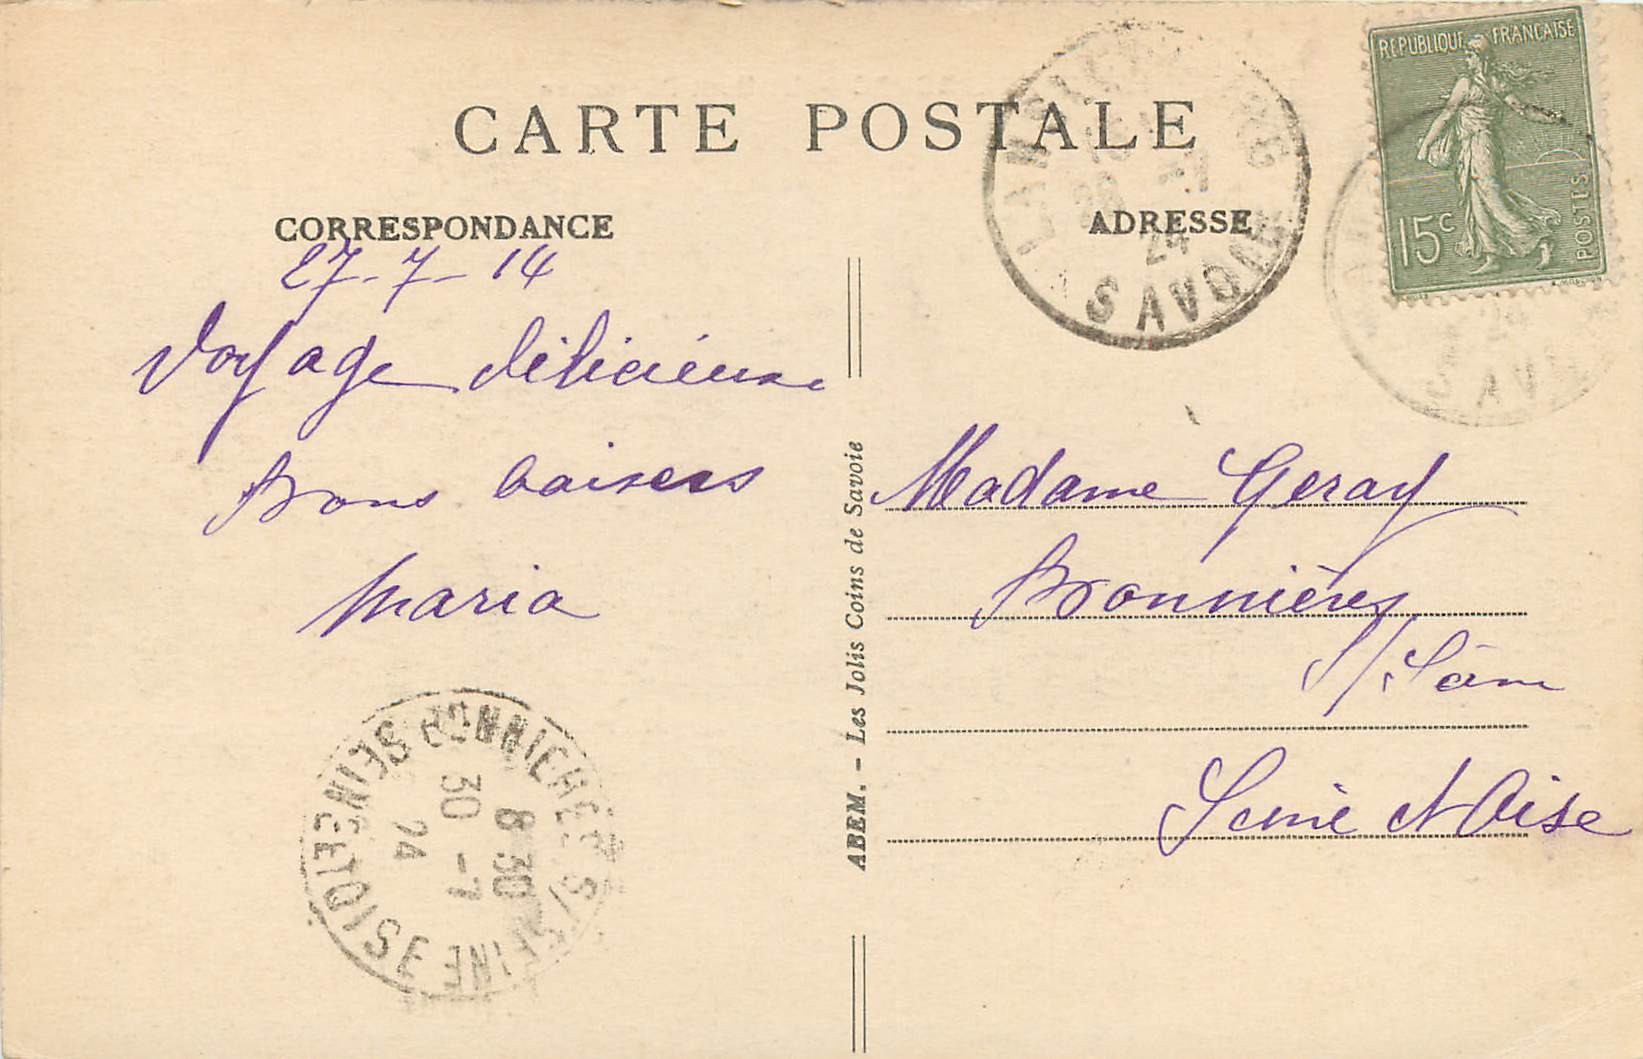 CARTE POSTALE
CORRESPONDANCE
27-7-14
Voyage délicieuse
Bons baisers
Maria
BONNIERES S/SEINE
8 30
30 -7
24
SEINE ET OISE
ABEM. - Les Jolis Coins de Savoie
ADRESSE
-7
24
SAVOIE
REPUBLIQUE FRANCAISE
15c
POSTES
24
Madame Geray
Bonnières
s/
Seine et Oise